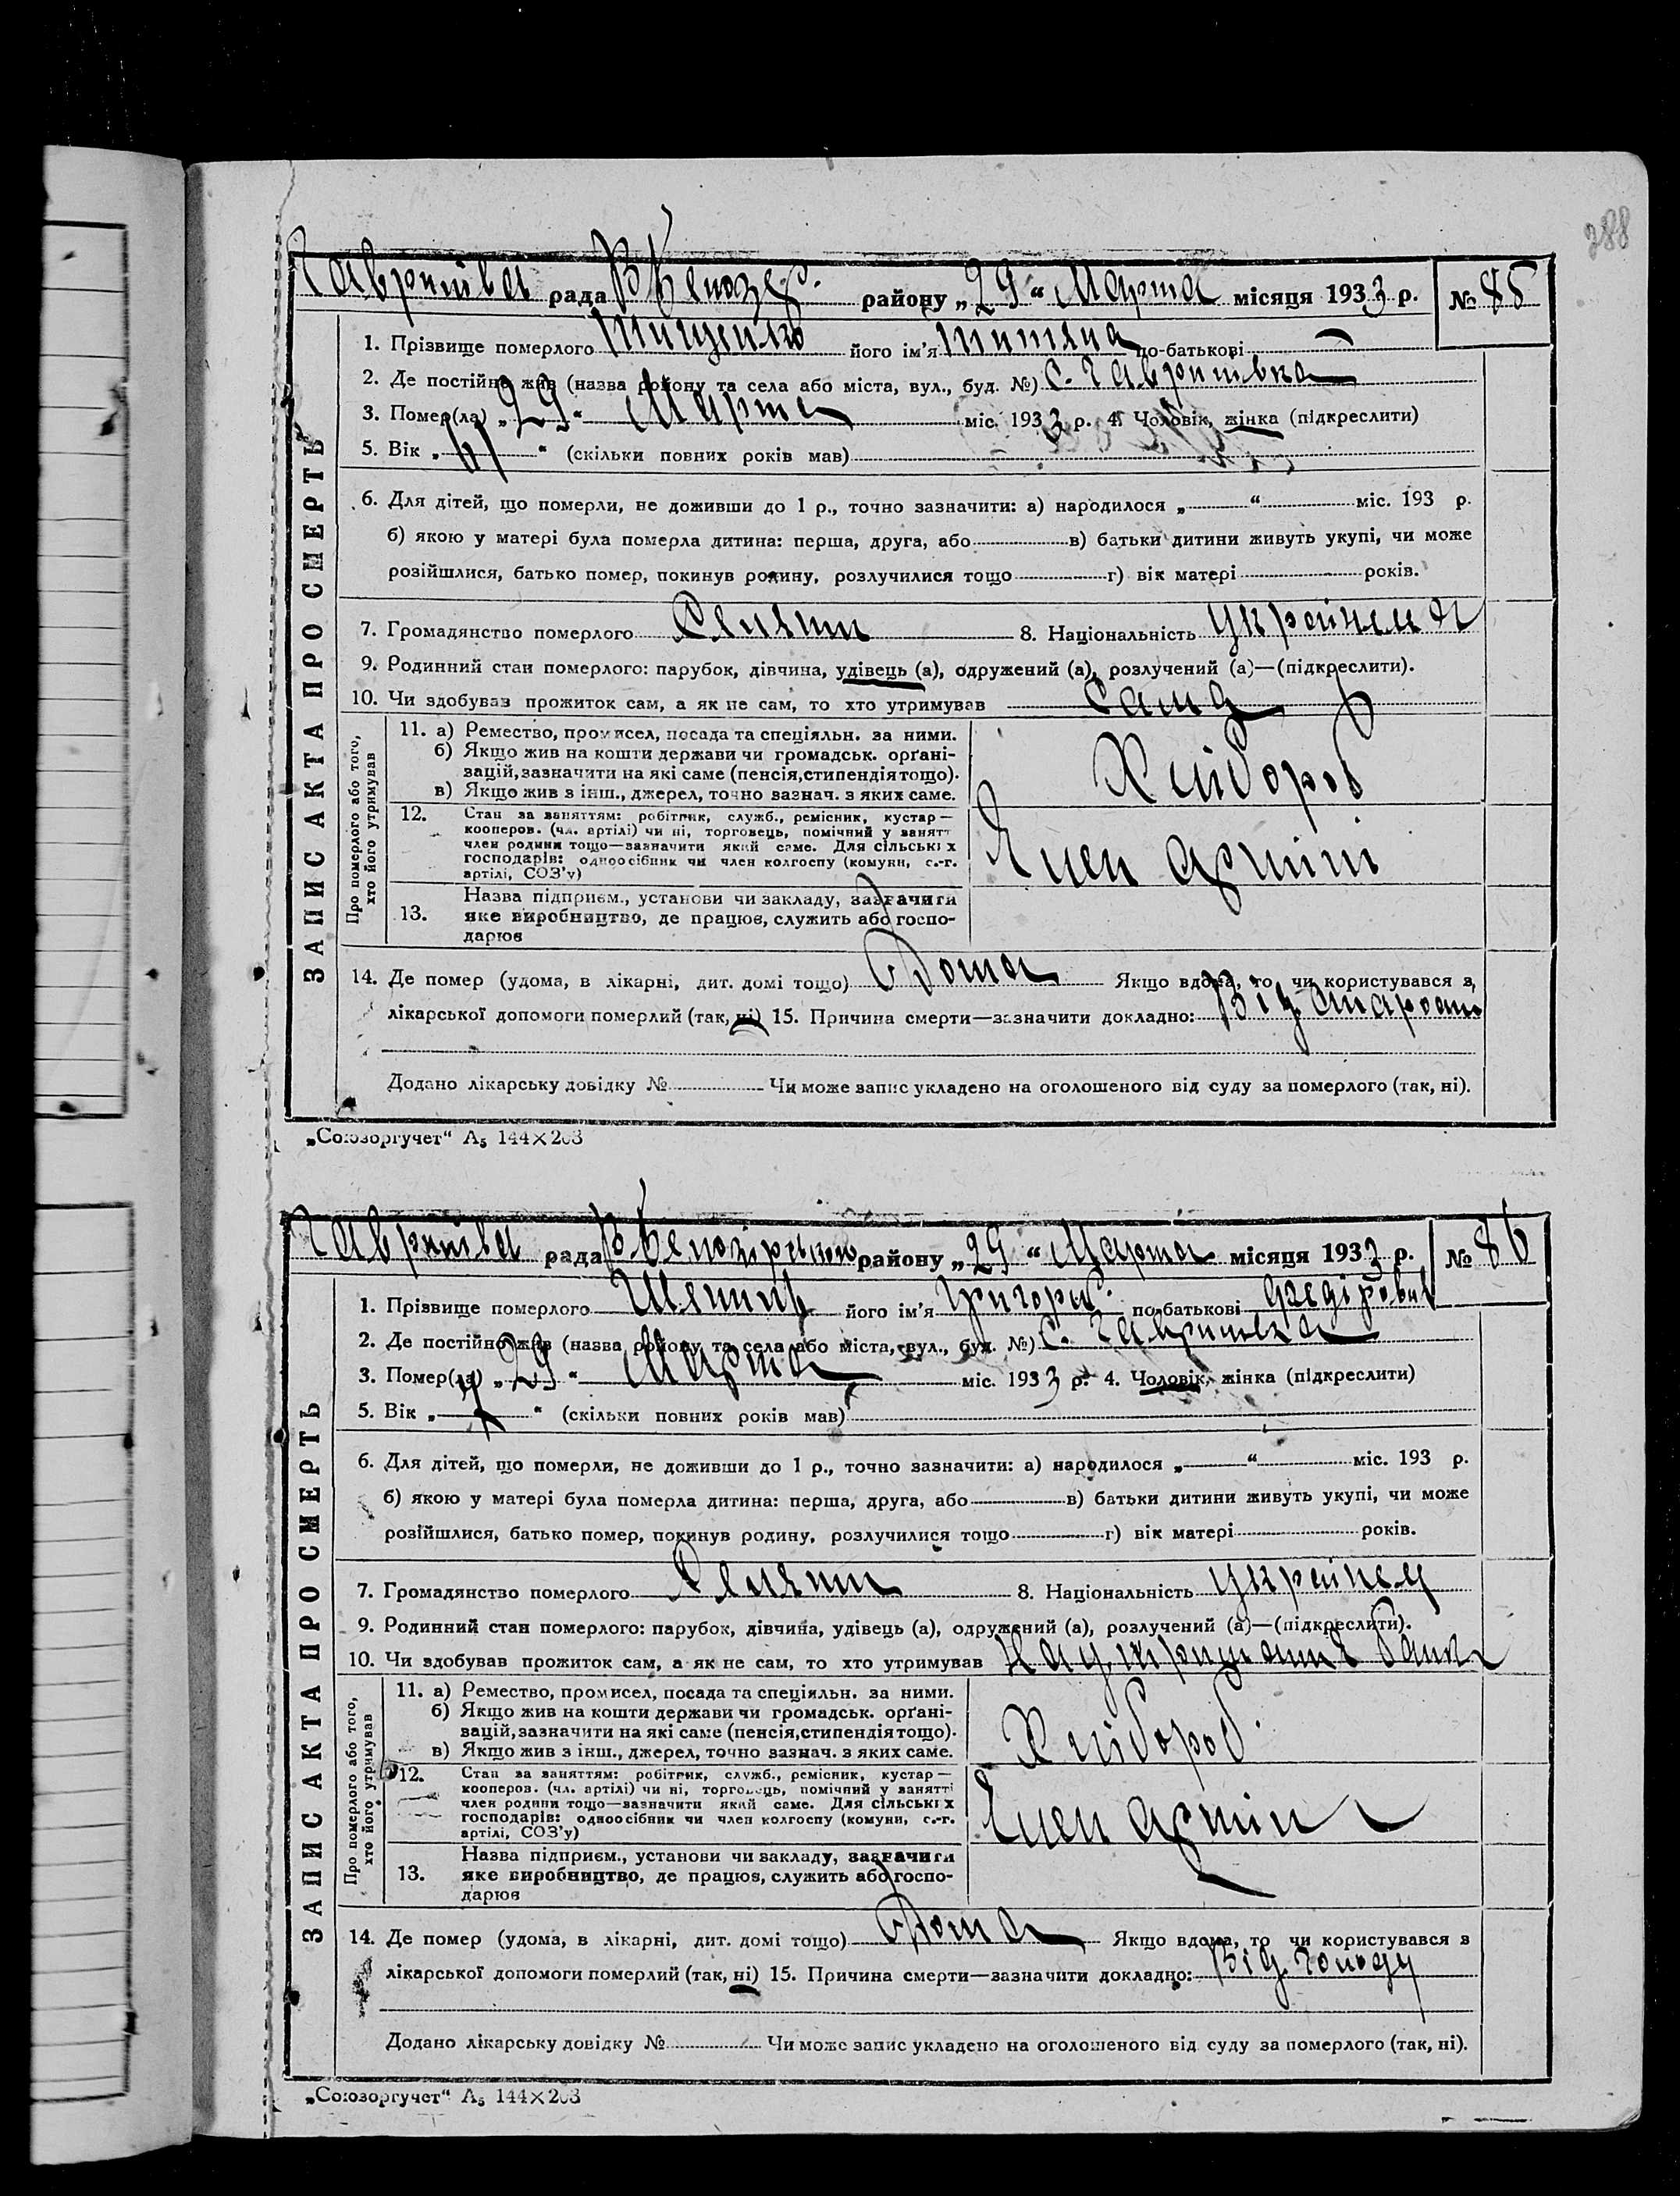 288
Гавритівка рада В Білозер. району „29“ Марта місяця 1933 р. № 85
1. Прізвище померлого Тищенко його ім'я Титяна по-батькові —
2. Де постійно жив (назва району та села або міста, вул., буд. №) с. Гавритівка
3. Помер(ла) „29“ Марта міс. 1933 р. 4. Чоловік, жінка (підкреслити)
5. Вік „61“ (скільки повних років мав)
ЗАПИС АКТА ПРО СМЕРТЬ
6. Для дітей, що померли, не доживши до 1 р., точно зазначити: а) народилося „ “ міс. 193 р.
б) якою у матері була померла дитина: перша, друга, або в) батьки дитини живуть укупі, чи може
розійшлися, батько помер, покинув родину, розлучилися тощо г) вік матері років.
7. Громадянство померлого Селяни 8. Національність
9. Родинний стан померлого: парубок, дівчина, удівець (а), одружений (а), розлучений (а)—(підкреслити).
10. Чи здобував прожиток сам, а як не сам, то хто утримував Сама
Про померлого або того, хто його утримував
11. а) Ремество, промисел, посада та спеціяльн. за ними.
б) Якщо жив на кошти держави чи громадськ. орґані-
зацій, зазначити на які саме (пенсія, стипендія тощо).
в) Якщо жив з інш., джерел, точно зазнач. з яких саме.
Хлібороб
12. Стан за заняттям: робітник, служб., ремісник, кустар —
кооперов. (чл. артілі) чи ні, торговець, помічний у занятт
член родини тощо—зазначити який саме. Для сільських
господарів: одноосібник чи член колгоспу (комуни, с.-г.
артілі, СОЗ'у)
Член артіли
13. Назва підприєм., установи чи закладу, зазначити
яке виробництво, де працює, служить або госпо-
дарює
14. Де помер (удома, в лікарні, дит. домі тощо) Дома Якщо вдома, то чи користувався з
лікарської допомоги померлий (так, ні) 15. Причина смерти—зазначити докладно: Від старости
Додано лікарську довідку № Чи може запис укладено на оголошеного від суду за померлого (так, ні).
„Союзоргучет“ А5 144×203
Гавритівка рада району „29“ Марта місяця 1933 р. № 86
1. Прізвище померлого його ім'я Григорій по-батькові Федірович
2. Де постійно жив (назва району та села або міста, вул., буд. №) с. Гавритівка
3. Помер(ла) „29“ Марта міс. 1933 р. 4. Чоловік, жінка (підкреслити)
5. Вік „7“ (скільки повних років мав)
ЗАПИС АКТА ПРО СМЕРТЬ
6. Для дітей, що померли, не доживши до 1 р., точно зазначити: а) народилося „ “ міс. 193 р.
б) якою у матері була померла дитина: перша, друга, або в) батьки дитини живуть укупі, чи може
розійшлися, батько помер, покинув родину, розлучилися тощо г) вік матері років.
7. Громадянство померлого Селяни 8. Національність Українец
9. Родинний стан померлого: парубок, дівчина, удівець (а), одружений (а), розлучений (а)—(підкреслити).
10. Чи здобував прожиток сам, а як не сам, то хто утримував На утриманні
Про померлого або того, хто його утримував
11. а) Ремество, промисел, посада та спеціяльн. за ними.
б) Якщо жив на кошти держави чи громадськ. орґані-
зацій, зазначити на які саме (пенсія, стипендія тощо).
в) Якщо жив з інш., джерел, точно зазнач. з яких саме.
Хлібороб.
12. Стан за заняттям: робітник, служб., ремісник, кустар —
кооперов. (чл. артілі) чи ні, торговець, помічний у занятті
член родини тощо—зазначити який саме. Для сільських
господарів: одноосібник чи член колгоспу (комуни, с.-г.
артілі, СОЗ'у)
Член артіли
13. Назва підприєм., установи чи закладу, зазначити
яке виробництво, де працює, служить або госпо-
дарює
14. Де помер (удома, в лікарні, дит. домі тощо) Дома Якщо вдома, то чи користувався з
лікарської допомоги померлий (так, ні) 15. Причина смерти—зазначити докладно: Від голоду
Додано лікарську довідку № Чи може запис укладено на оголошеного від суду за померлого (так, ні).
„Союзоргучет“ А5 144×203